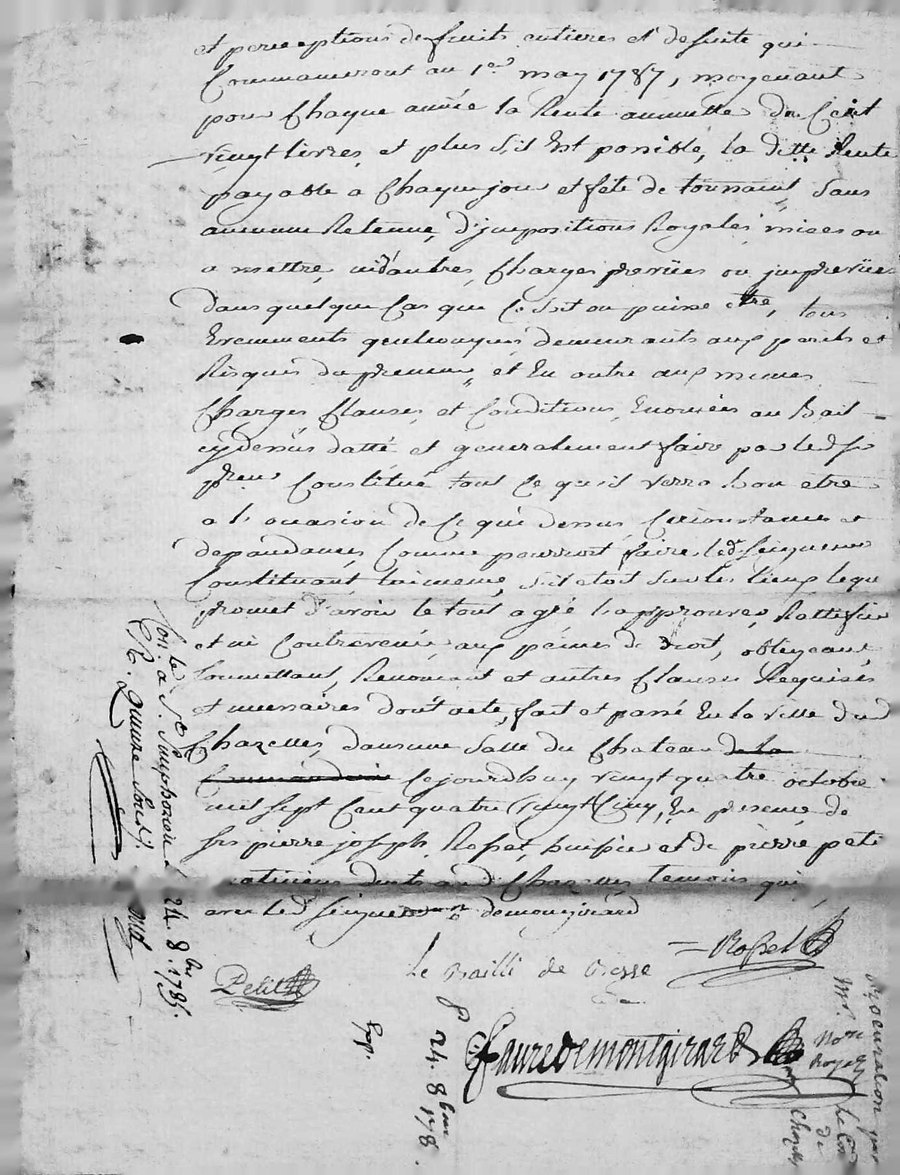 et perceptions de fruits entieres et de suite qui
Commanceront au 1er may 1787, moyenant
pour Chaque année la Rente annuelle de Cent
vingt livres, et plus s'il Est possible, la ditte Rente
payable a Chaque jour et fete de toussaint, Sans
aucunne Retenue, d'impositions Royales, mises ou
a mettre, ni d'autres, Charges prevües ou imprevües
Dans quelque Cas que Ce Soit ou puisse etre, tous
Evenements quelconques, demeurants aux perils et
Risques du preneur, et En outre aux memes
Charges Clauses, et Conditions, Enoncées au Bail
cy dessus datté et generalement faire par led. Sr
preur Constitué tout Ce qu'il verra bon etre
a l'occasion de Ce que dessus, Circonstances et
dependances, Comme pourroit faire led. Seigneur
Constituant, lui meme, s'il etoit Sur les lieux lequel
promet d'avoir le tout agré L'approuver, Rattifier
et ni Contrevenir, aux peines de droit, obligeant,
Soumettant, Renoncant et autres Clauses Requises
et necessaires dont acte, fait et passé En la ville dud
Chazelles, dans une Salle du Chateau de la
Commanderie Cejourdhuy vingt quatre octobre
mil sept Cent quatre Vingt Cinq, En presence de
Srs pierre joseph, Ropet, huissier et de pierre petit
praticien dud. Chazelles temoins qui
avec led. Seigneur de mongirard
Le Bailli de Besse
Ropet
Petit
Faure de montgirard
Con. le
a St. Simphorien 24. 8.bre 1785.
R. quinze Sols
24. 8.bre 178
Procuration pour
Mr.